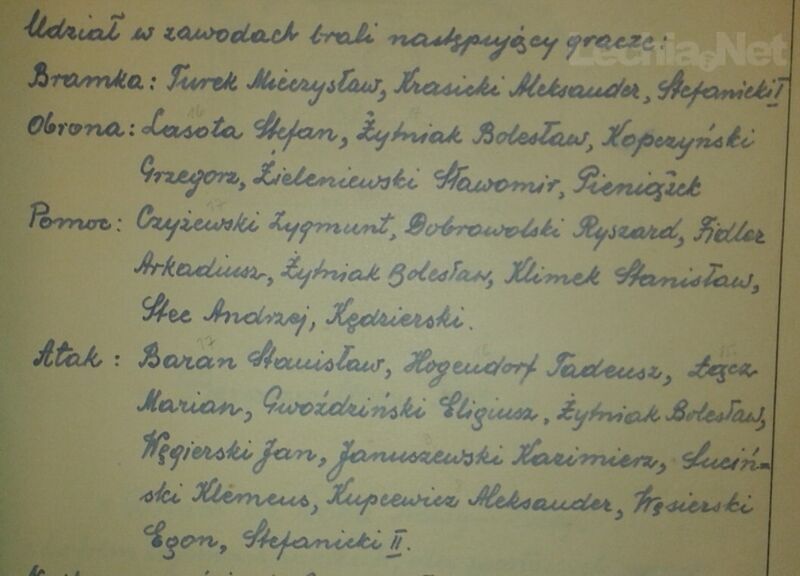 Udział w zawodach brali następujący gracze:
Lechia.Net
Bramka: Turek Mieczysław, Krasicki Aleksander, Stefanicki I
Obrona: Lasota Stefan, Żytniak Bolesław, Kopczyński
Grzegorz, Zieleniewski Sławomir, Pieniążek
Pomoc: Czyżewski Zygmunt, Dobrowolski Ryszard, Fidler
Arkadiusz, Żytniak Bolesław, Klimek Stanisław,
Stec Andrzej, Kędzierski.
Atak: Baran Stanisław, Hogendorf Tadeusz, Łącz
Marian, Gwoździński Eligiusz, Żytniak Bolesław,
Węgierski Jan, Januszewski Kazimierz, Suciń-
ski Klemens, Kupcewicz Aleksander, Węsierski
Egon, Stefanicki II.